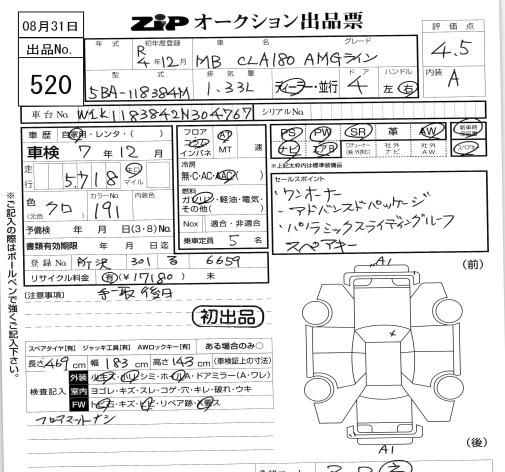 08月31日
出品No.
520
ZiP オークション出品票
評価点
4.5
内装 A
年式 初年度登録 車名 グレード
R 4年12月 MB CLA180 AMGライン
型式 排気量 ドア ハンドル
5BA-118384M 1.33L ディーラー・並行 4 左 右
車台No. W1K1183842N304767 シリアルNo.
車歴 自家用・レンタ・( )
車検 7年12月
走行 5,718 キロ マイル
色 (元色) クロ カラーNo. 191 内装色
予備検 年 月 日(3・8)No.
書類有効期限 年 月 日迄
登録No 所沢 301 る 6659
リサイクル料金 有(¥17180) 未
フロア コラム インパネ AT MT 速
冷房 無・C・AC・AAC
燃料 ガソリン・軽油・電気・その他( )
Nox 適合・非適合
乗車定員 5 名
PS PW SR 革 AW 新車時保証書
ナビ エアB ロデューナー (純・外含む) 社外ナビ 社外AW スペアキー
*上記太枠内は標準装備品
セールスポイント
・ワンオーナー
・アドバンスドパッケージ
・パノラミックスライディングルーフ
スペアキー
※ご記入の際はボールペンで強くご記入下さい。
[注意事項] 書取後日
初出品
スペアタイヤ[有] ジャッキ工具[有] AWロックキー[有] ある場合のみ○
長さ 469 cm 幅 183 cm 高さ 143 cm (車検証上の寸法)
検査記入
外装 小キズ・小ヘコ・シミ・ホイールA・ドアミラー(A・ワレ)
室内 ヨゴレ・キズ・スレ・コゲ・穴・キレ・破れ・ウキ
FW 飛石・キズ・ヒビ・リペア跡・ワイパーキズ
フロアマットナシ
A1
(前)
A1
(後)